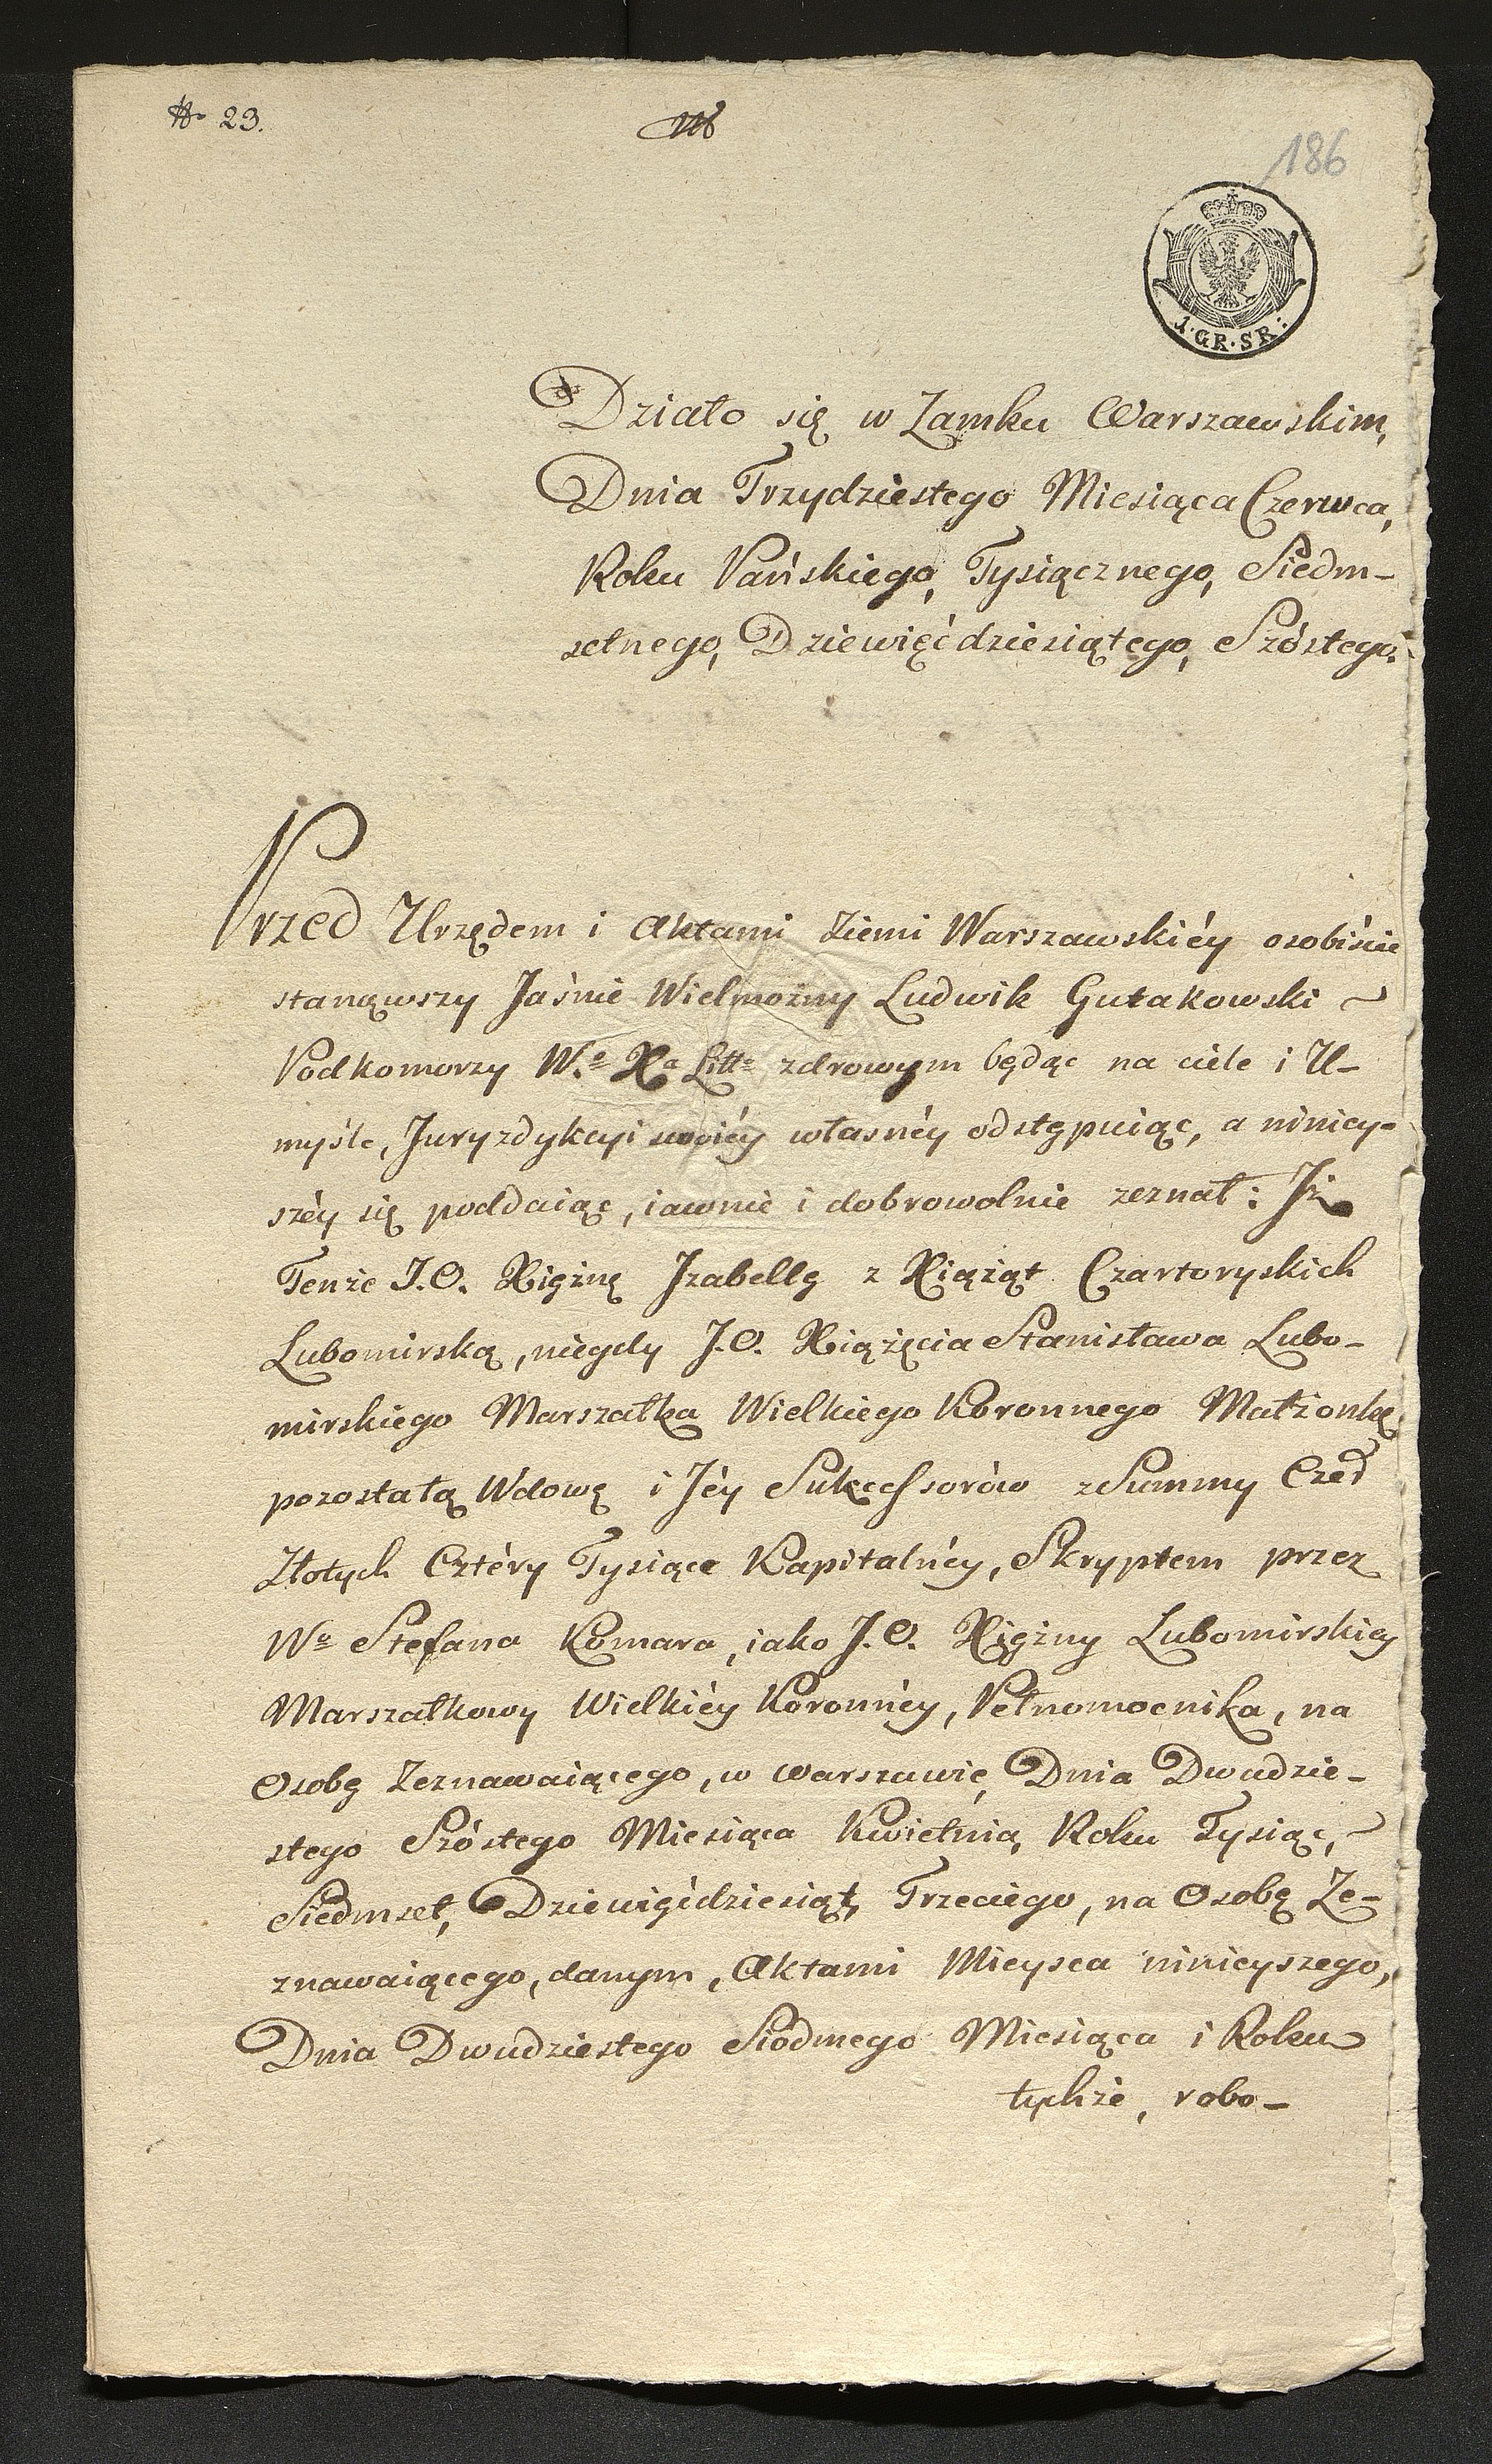 No 23.
186
1·GR·SR:
Działo się w Zamku Warszawskim,
Dnia Trzydziestego Miesiąca Czerwca,
Roku Pańskiego, Tysiącznego, Siedm-
setnego, Dziewięćdziesiątego, Szóstego.
Przed Urzędem i Aktami Ziemi Warszawskiéy osobiście
stanąwszy Jaśnie Wielmożny Ludwik Gutakowski
Podkomorzy Wo Xa Litto zdrowym będąc na ciele i U-
myśle, Juryzdykcyi swoiéy własnéy odstępuiąc, a niniey-
széy się poddaiąc, iawnie i dobrowolnie zeznał: Iż
Tenże J.O. Xiężnę Izabellę z Xiążąt Czartoryskich
Lubomirską, niegdy J.O. Xiążęcia Stanisława Lubo-
mirskiego Marszałka Wielkiego Koronnego Małżonkę
pozostałą Wdowę i Jéy Sukcessorów z Summy Czer
Złotych Cztéry Tysiące Kapitalnéy, Skryptem przez
Wo Stefana Komara, iako J.O. Xiężny Lubomirskiéy
Marszałkowy Wielkiéy Koronnéy, Pełnomocnika, na
Osobę Zeznawaiącego, w Warszawie, Dnia Dwudzie-
stego Szóstego Miesiąca Kwietnia, Roku Tysiąc,
Siedmset, Dziewięćdziesiąt, Trzeciego, na Osobę Ze-
znawaiącego, danym, Aktami Mieysca ninieyszego,
Dnia Dwudziestego Siodmego Miesiąca i Roku
tychże, robo-